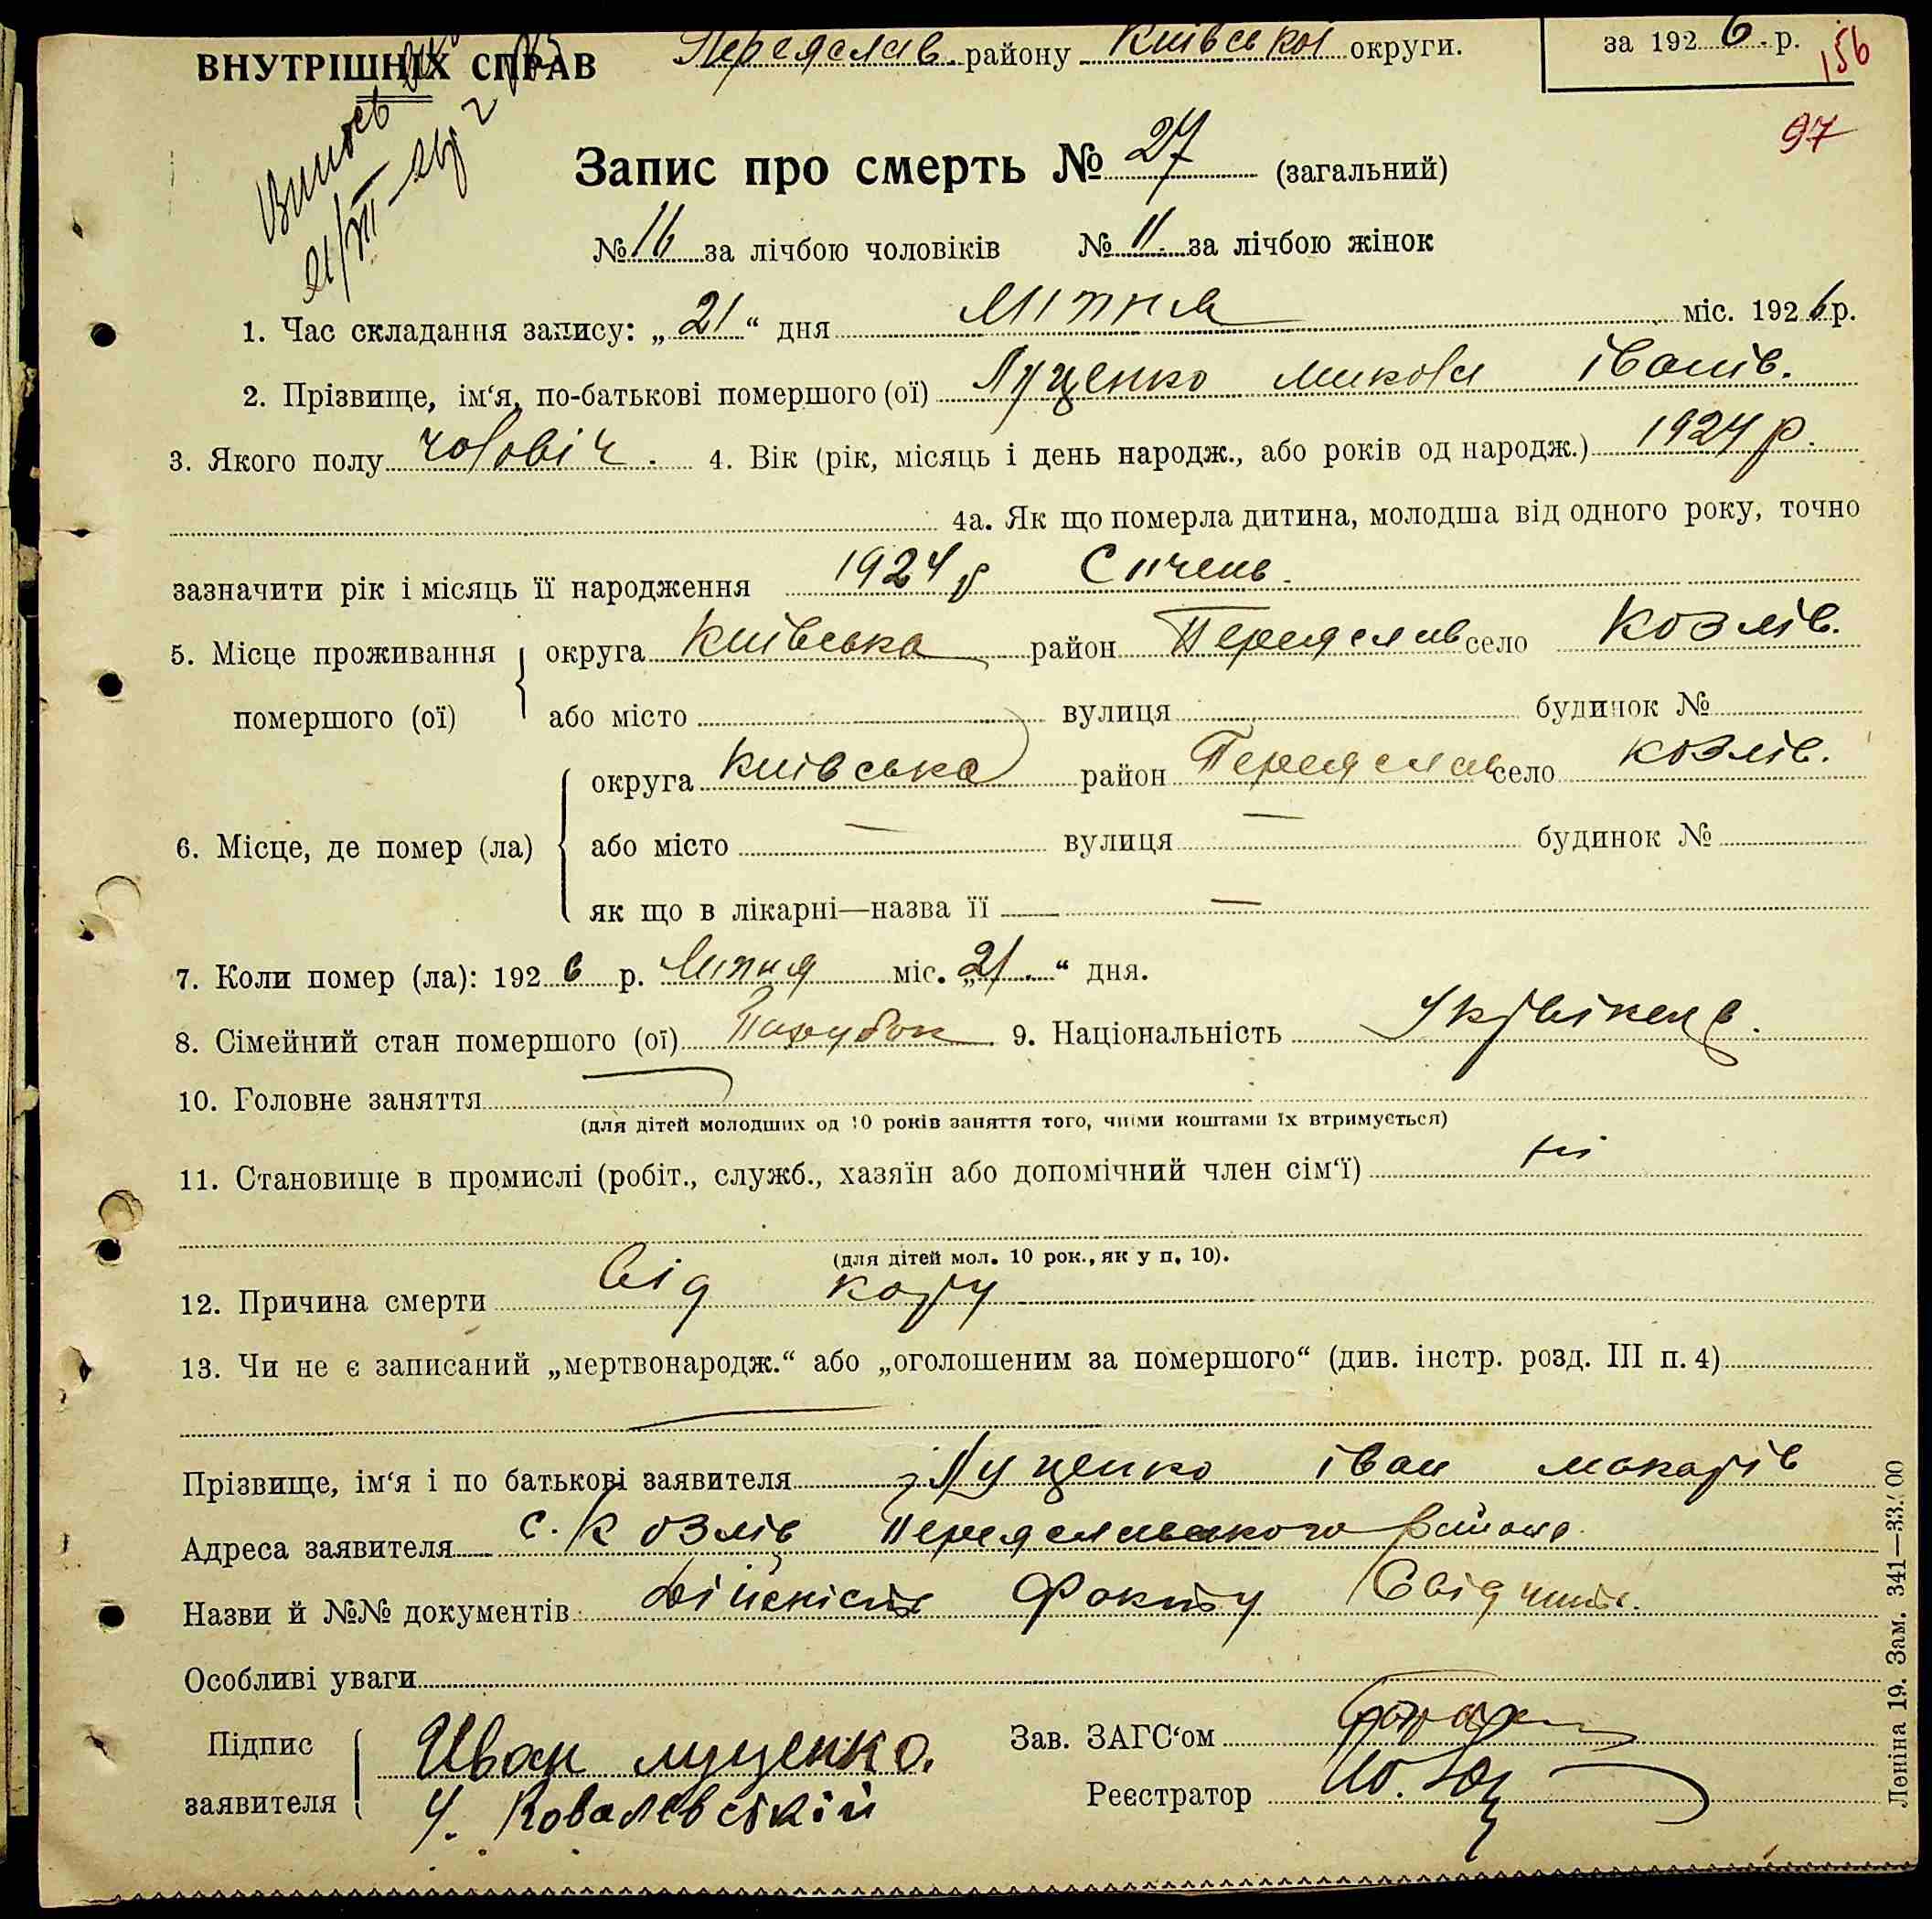 ВНУТРІШНІХ СПРАВ Переяслав. району Київської округи. за 1926.р. 156
97
Запис про смерть № 27 (загальний)
№ 16 за лічбою чоловіків № 11. за лічбою жінок
1. Час складання запису: „21“ дня Липня міс. 1926 р.
2. Прізвище, ім‘я, по-батькові помершого (ої) Луценко Микола Іванів.
3. Якого полу чоловіч. 4. Вік (рік, місяць і день народж., або років од народж.) 1924 р.
4а. Як що померла дитина, молодша від одного року, точно
зазначити рік і місяць її народження 1924 р Січень.
5. Місце проживання помершого (ої) округа Київська район Переяслав село Козлів.
або місто вулиця будинок №
6. Місце, де помер (ла) округа Київська район Переяслав село Козлів.
або місто — вулиця — будинок №
як що в лікарні—назва її —
7. Коли помер (ла): 1926 р. Липня міс. „21“ дня.
8. Сімейний стан помершого (ої) Парубок 9. Національність
10. Головне заняття
(для дітей молодших од 10 років заняття того, чиїми коштами їх втримується)
11. Становище в промислі (робіт., служб., хазяїн або допомічний член сім‘ї)
(для дітей мол. 10 рок., як у п. 10).
12. Причина смерти від кору
13. Чи не є записаний „мертвонародж.“ або „оголошеним за помершого“ (див. інстр. розд. III п. 4)
Прізвище, ім‘я і по батькові заявителя Луценко Іван Макарів
Адреса заявителя с. Козлів Переяславського району
Назви й №№ документів Дійсність Факту
Особливі уваги
Підпис заявителя Иван Луценко. Зав. ЗАГС‘ом
Ковалевський Реєстратор
Леніна 19. Зам. 341—33.